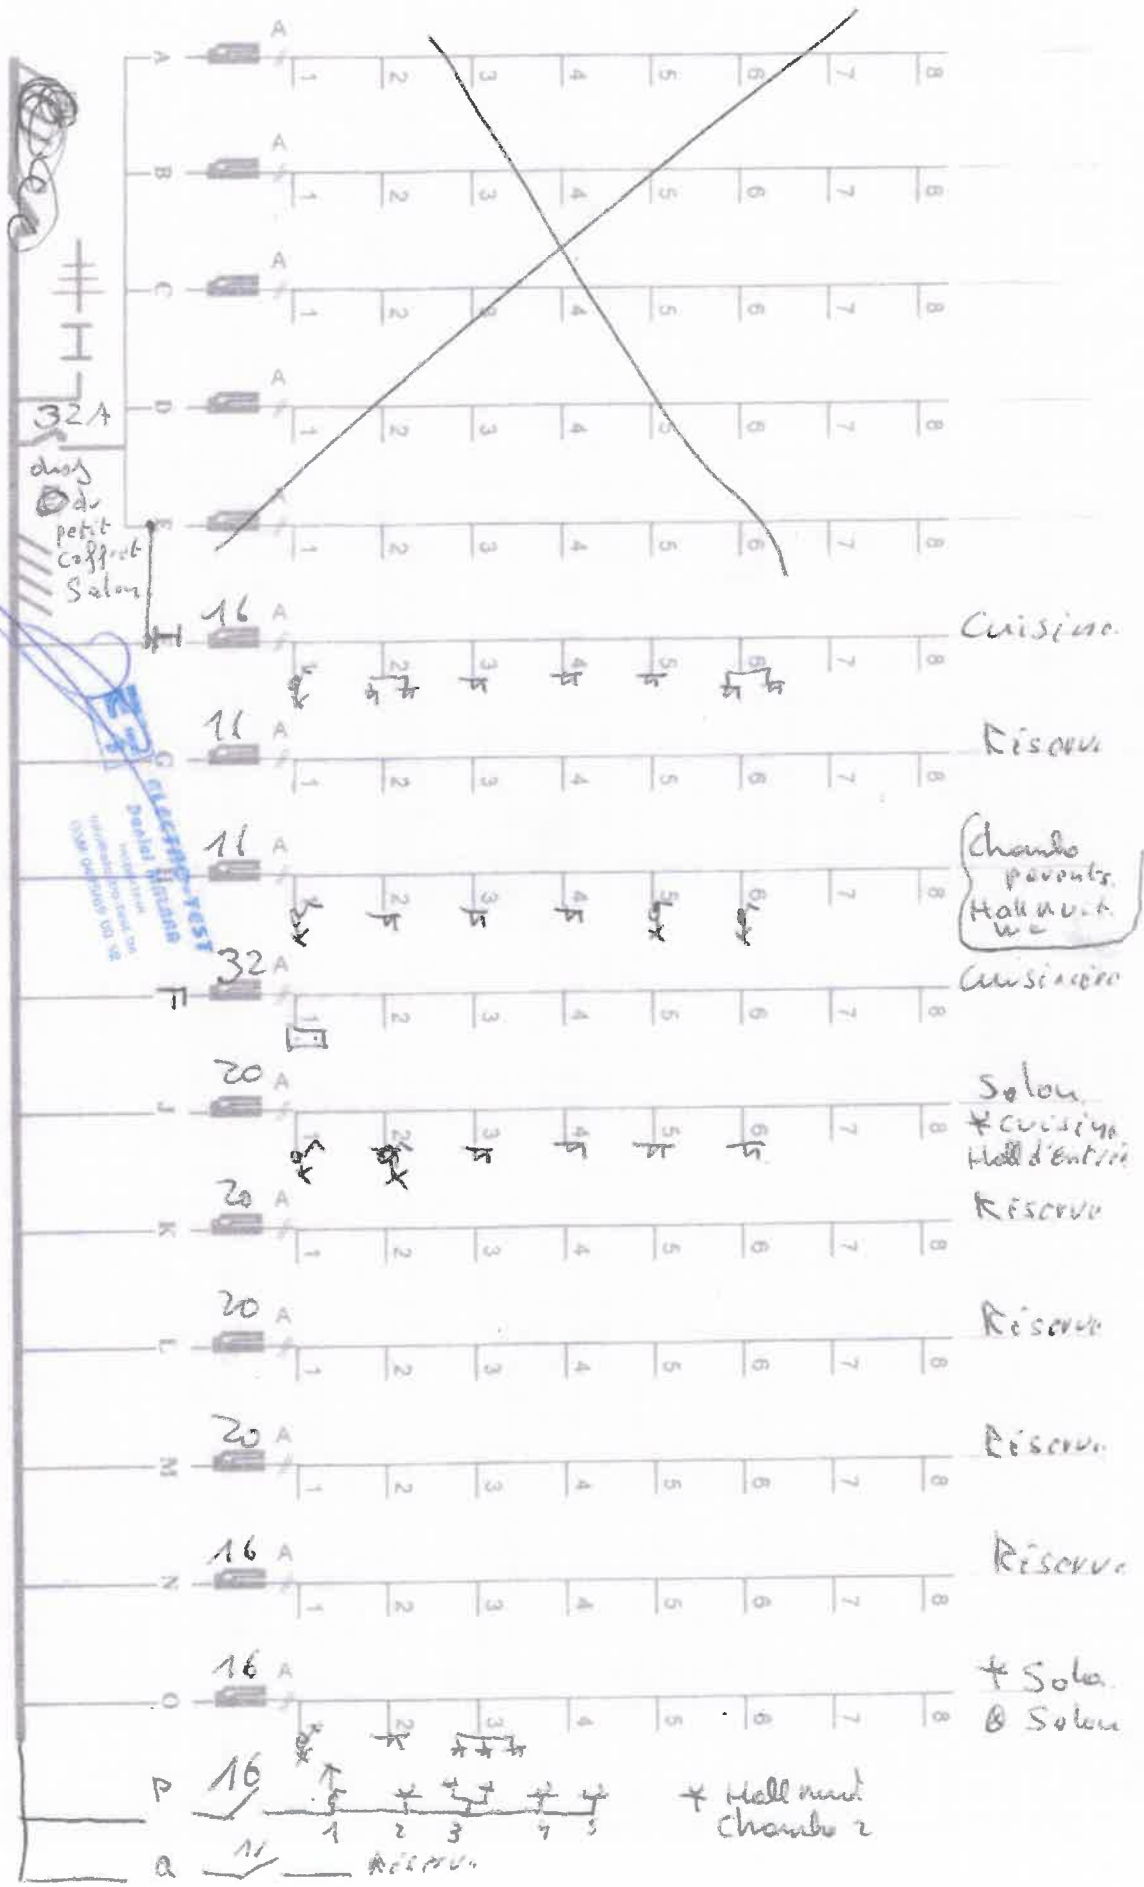 A A 1 2 3 4 5 6 7 8
B A 1 2 3 4 5 6 7 8
C A 1 2 3 4 5 6 7 8
D A 1 2 3 4 5 6 7 8
32A
E A 1 2 3 4 5 6 7 8
du
petit
Coffret
Salon
I 16 A 1 2 3 4 5 6 7 8 Cuisine
G 16 A 1 2 3 4 5 6 7 8 Réserve
ELECTRO-TEST
H 16 A 1 2 3 4 5 6 7 8 Chambre
parents
Hall nuit
WC
F 32 A 1 2 3 4 5 6 7 8 Cuisinière
J 20 A 1 2 3 4 5 6 7 8 Salon
* Cuisine
Hall d'Entrée
K 20 A 1 2 3 4 5 6 7 8 Réserve
L 20 A 1 2 3 4 5 6 7 8 Réserve
M 20 A 1 2 3 4 5 6 7 8 Réserve
N 16 A 1 2 3 4 5 6 7 8 Réserve
O 16 A 1 2 3 4 5 6 7 8 Salon
Salon
P 16 1 2 3 4 5 Hall nuit
Chambre 2
Q 16 Réserve